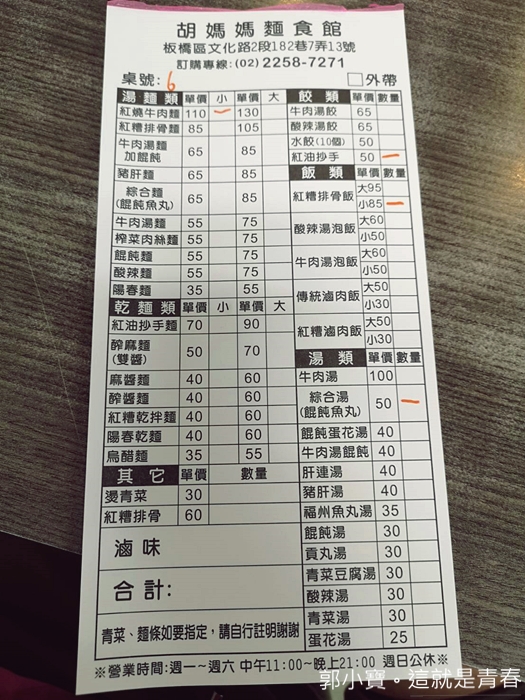 胡媽媽麵食館
板橋區文化路2段182巷7弄13號
訂購專線:(02) 2258-7271
桌號: 6 □外帶
湯麵類 單價 小 單價 大
紅燒牛肉麵 110 一 130
紅糟排骨麵 85 105
牛肉湯麵加餛飩 65 85
豬肝麵 65 85
綜合麵(餛飩魚丸) 65 85
牛肉湯麵 55 75
榨菜肉絲麵 55 75
餛飩麵 55 75
酸辣麵 55 75
陽春麵 35 55
乾麵類 單價 小 單價 大
紅油抄手麵 70 90
醡麻麵(雙醬) 50 70
麻醬麵 40 60
醡醬麵 40 60
紅糟乾拌麵 40 60
陽春乾麵 40 60
烏醋麵 35 55
其它 單價 數量
燙青菜 30
紅糟排骨 60
滷味
合計:
青菜、麵條如要指定，請自行註明謝謝
餃類 單價 數量
牛肉湯餃 65
酸辣湯餃 65
水餃(10個) 50
紅油抄手 50 一
飯類 單價 數量
紅糟排骨飯 大95
小85 一
酸辣湯泡飯 大60
小50
牛肉湯泡飯 大60
小50
傳統滷肉飯 大50
小30
紅糟滷肉飯 大50
小30
湯類 單價 數量
牛肉湯 100
綜合湯(餛飩魚丸) 50 一
餛飩蛋花湯 40
牛肉湯餛飩 40
肝連湯 40
豬肝湯 40
福州魚丸湯 35
餛飩湯 30
貢丸湯 30
青菜豆腐湯 30
酸辣湯 30
青菜湯 30
蛋花湯 25
※營業時間:週一~週六 中午11:00~晚上21:00 週日公休※
郭小寶。這就是青春